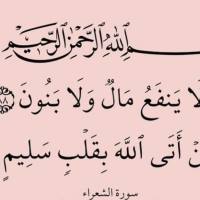 ـسم الله الرحمن الرحيم
لَا يَنفَعُ مَالٌ وَلَا بَنُونَ ٨٨
ـنْ أَتَى ٱللَّهَ بِقَلْبٍ سَلِيمٍ
سورة الشعراء